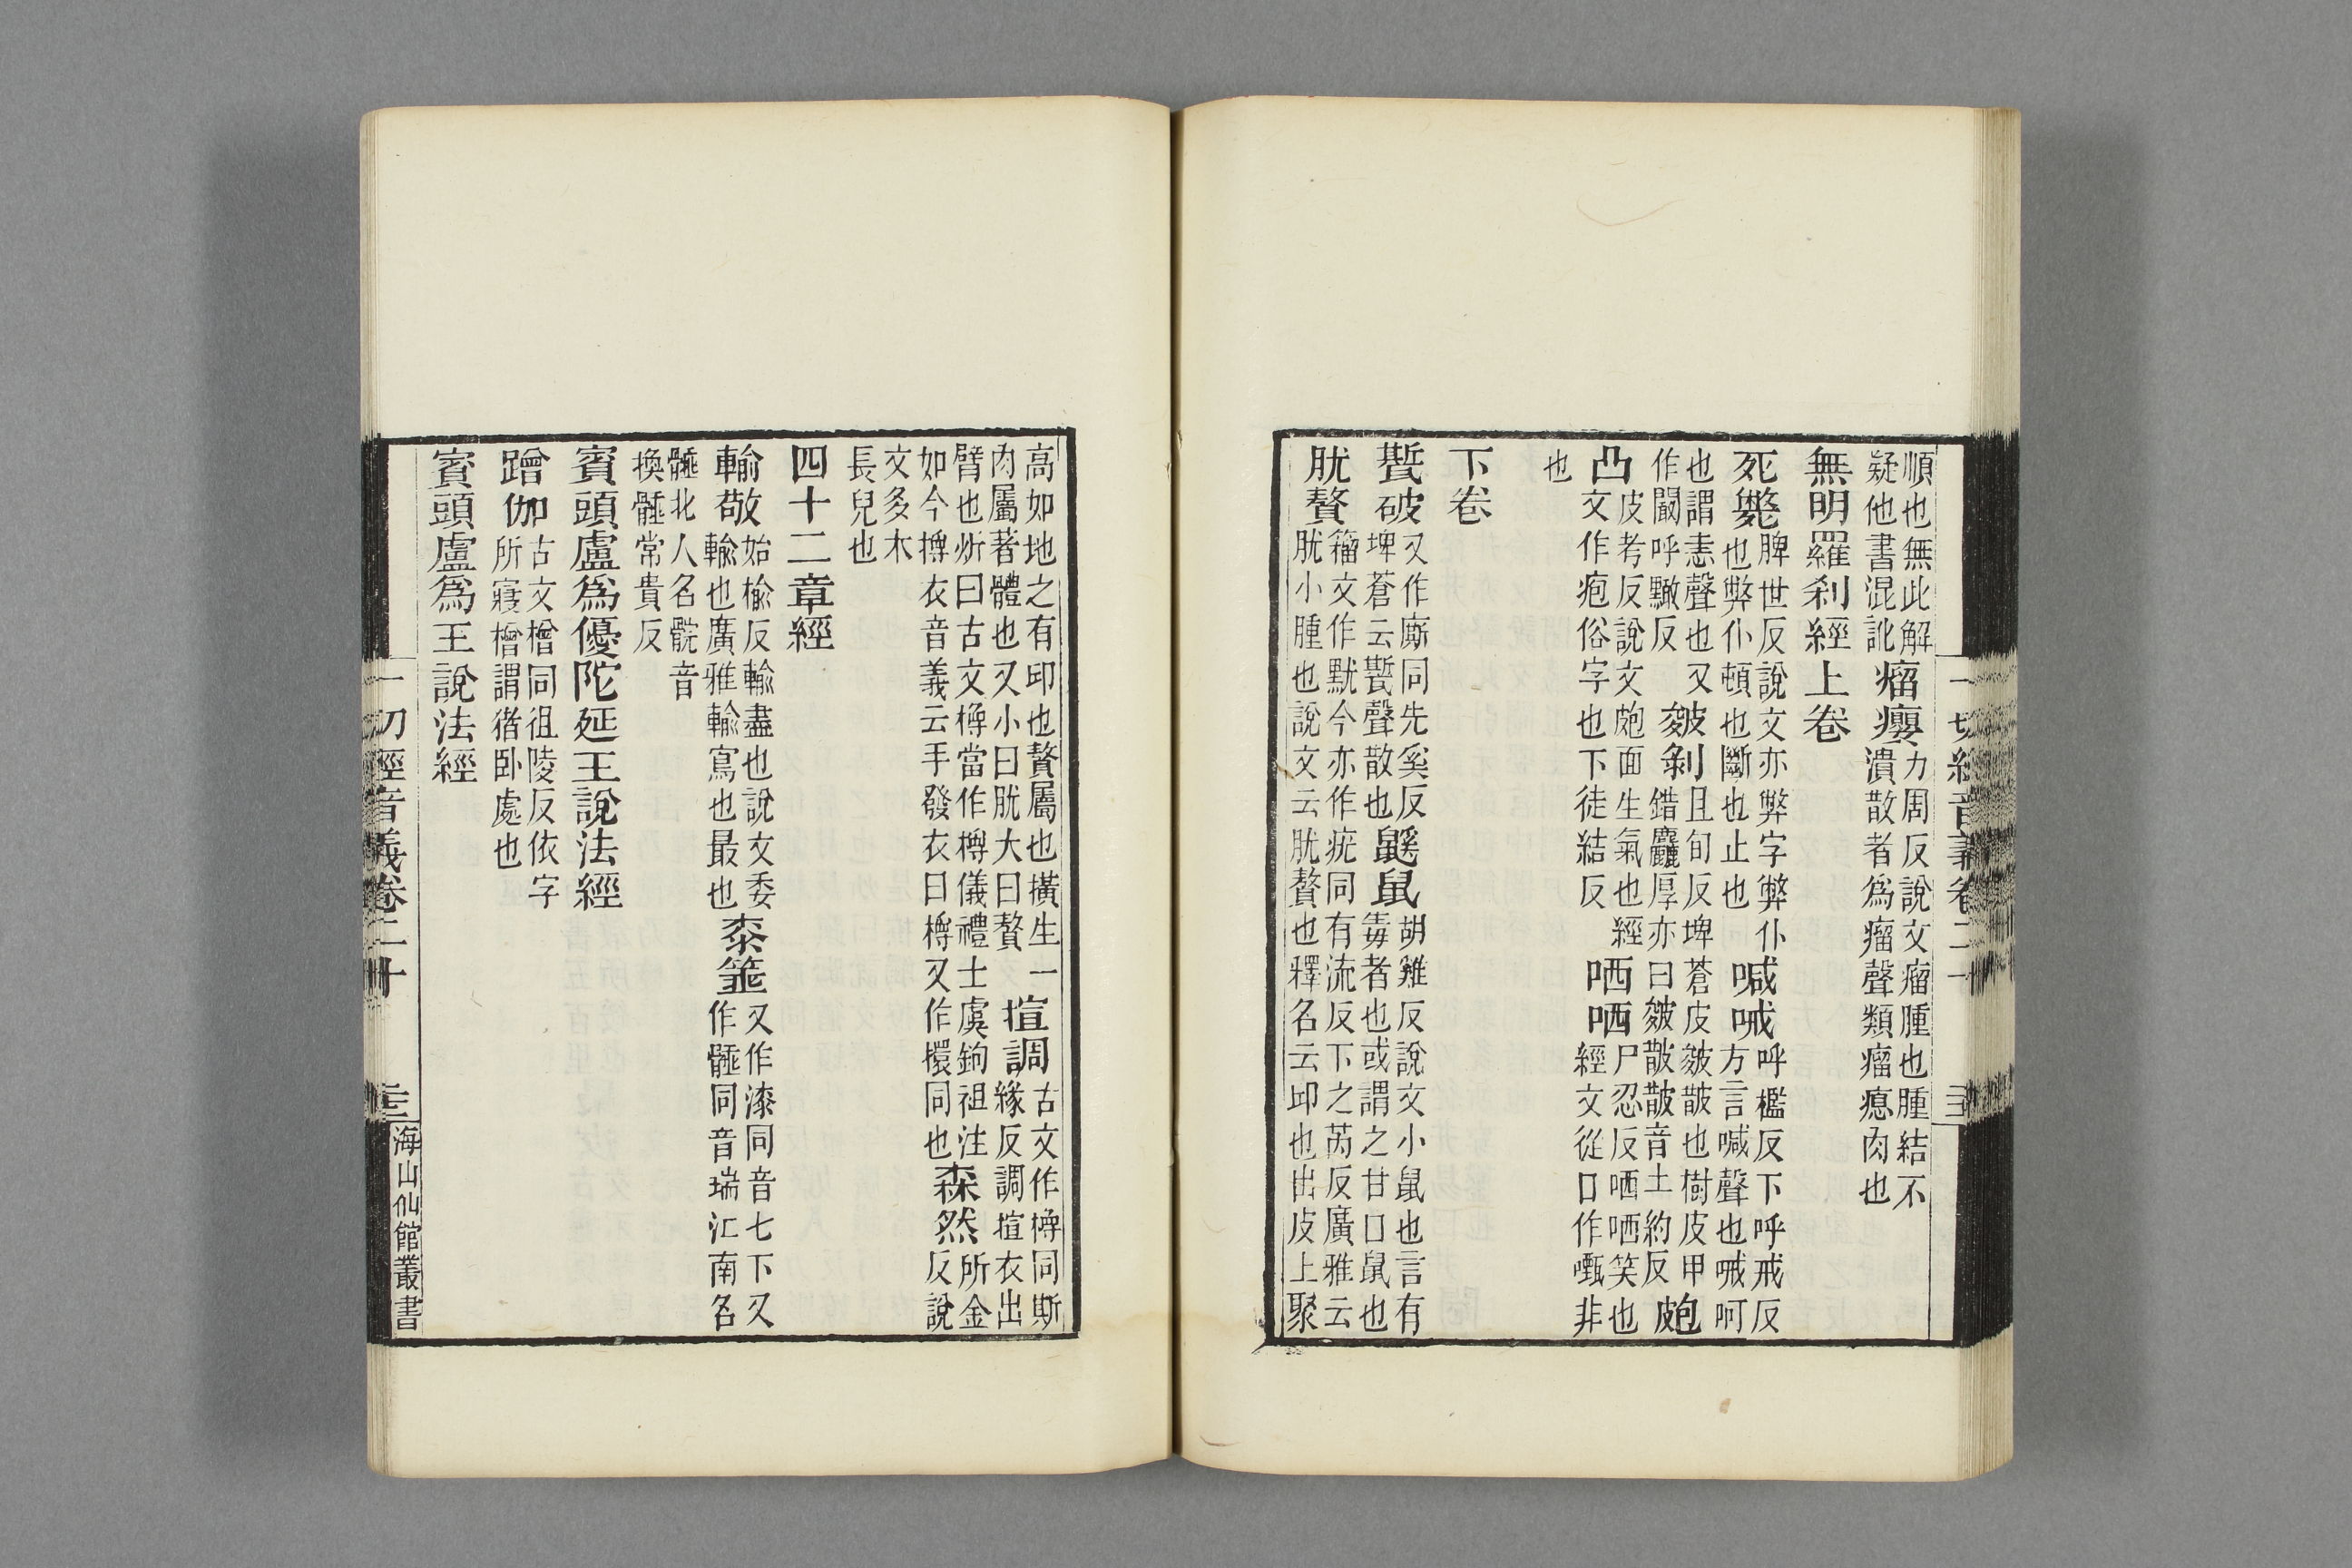 順也無此解
疑他書混訛
瘤癭
力周反說文瘤腫也腫結不
潰散者爲瘤聲類瘤瘜肉也
無明羅刹經上卷
死斃
脾世反說文亦弊字弊仆
也弊仆頓也斷也止也
喊㖑
呼檻反下呼戒反
方言喊聲也㖑呵
也謂恚聲也又
作闞呼㘚反
皴剝
且旬反埤蒼皮皴皵也樹皮甲
錯麤厚亦曰皴皵皵音土約反
皰
凸
皮孝反說文皰面生氣也經
文作疱俗字也下徒結反
哂哂
尸忍反哂哂笑也
經文從口作㖷非
也
下卷
甈破
又作廝同先奚反
埤蒼云甈聲散也
鼷鼠
胡雞反說文小鼠也言有
毒者也或謂之甘口鼠也
肬贅
籀文作默今亦作疣同有流反下之芮反廣雅云
肬小腫也說文云肬贅也釋名云㐀也出皮上聚
一切經音義卷二十
高如地之有㐀也贅屬也橫生一
肉屬著體也又小曰肬大曰贅
揎調
古文作㨆同斯
緣反調揎衣出
臂也炘曰古文㨆當作𢮃儀禮士虞鉤袒注
如今𢮃衣音義云手發衣曰𢮃又作擐同也
森然
所金
反說
文多木
長皃也
四十二章經
輸敬
始榆反輸盡也說文委
輸也廣雅輸寫也最也
桼箠
又作漆同音七下又
作𩩻同音瑞江南名
𩩻北人名䯘音
換𩩻常貴反
賓頭盧爲優陀延王說法經
蹭伽
古文橧同徂陵反依字
所寢橧謂猪卧處也
賓頭盧爲王說法經
一切經音義卷二十
海山仙館叢書